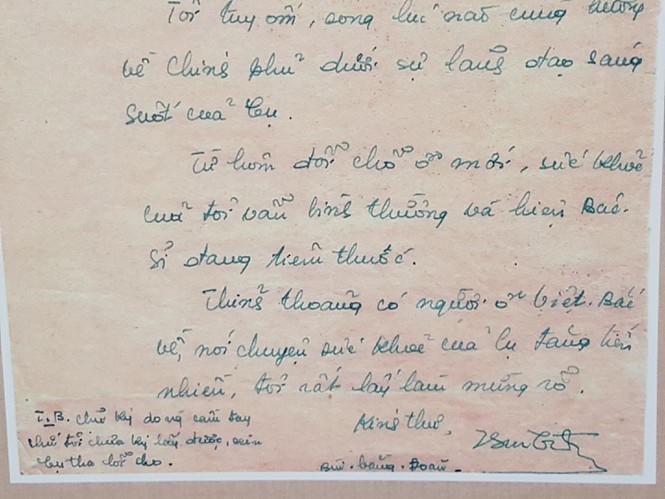 Tôi tuy ốm, song lúc nào cũng hướng
về Chính phủ dưới sự lãnh đạo sáng
suốt của Cụ.
Từ hôm đổi chỗ ở mới, sức khoẻ
của tôi vẫn bình thường và hiện Bác-
sĩ đang tiêm thuốc.
Thỉnh thoảng có người ở Việt-Bắc
về, nói chuyện sức khoẻ của Cụ tăng tiến
nhiều, tôi rất lấy làm mừng rỡ.
Kính thư,
Bùi-bằng-Đoàn-
T.B. Chữ ký do vợ cầm tay
chứ tôi chưa ký lấy được, xin
Cụ tha lỗi cho.